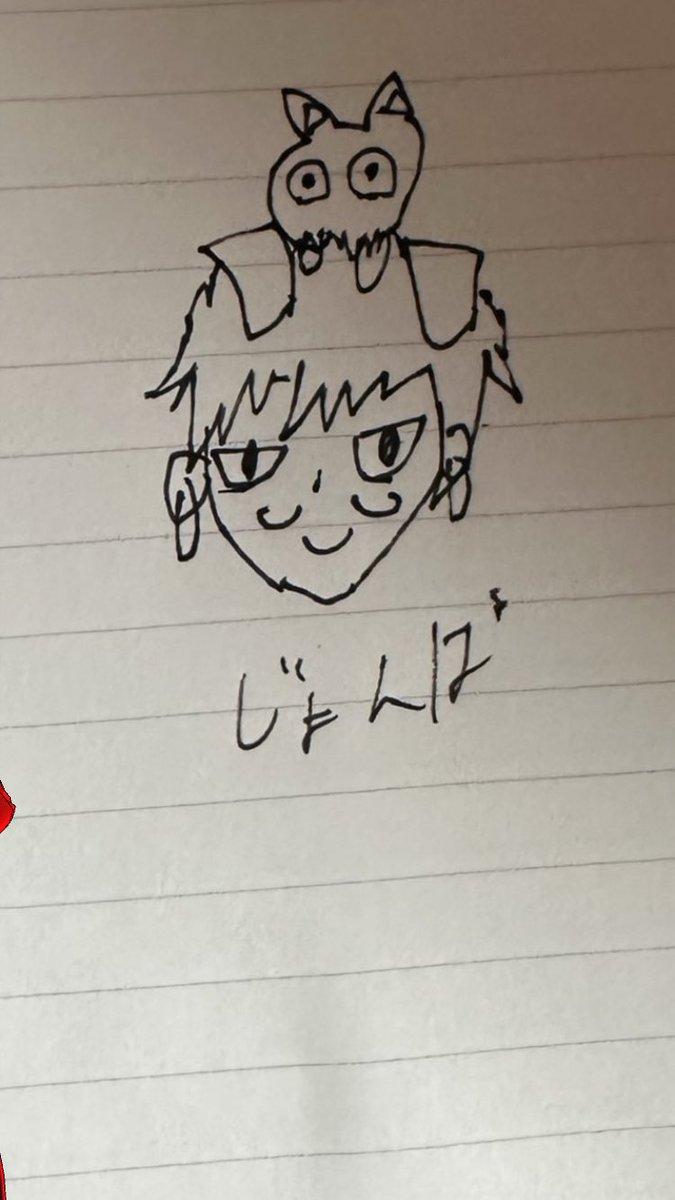 じょんば